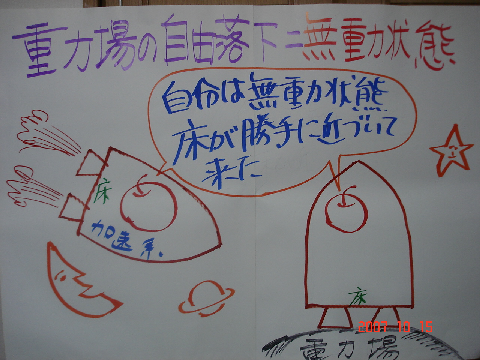 重力場の自由落下=無重力状態
自分は無重力状態
床が勝手に近づいて
来た
床
加速系.
床
重力場
2007 10 15